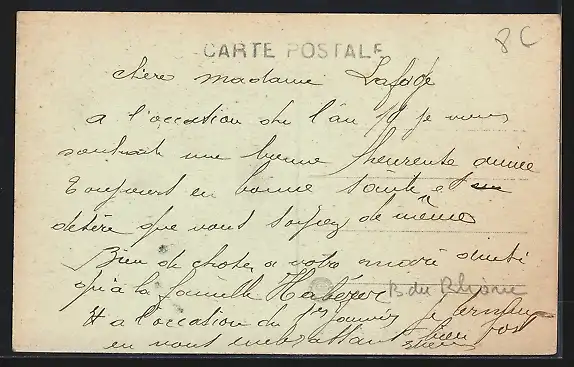 8 C
CARTE POSTALE
chère madame Lafage
a l'occasion du l'an je vous
souhaite une bonne & heureuse année
Toujours en bonne santé et
désire que vous soiyez de même
Bien de choses a votre mari ainsi
qu'à la famille B. du Rhône
et a l'occasion du 1er janvier je
en vous embrassant bien